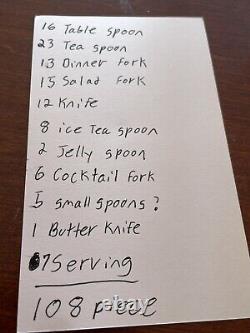 16 Table spoon
23 Tea spoon
13 Dinner fork
15 Salad Fork
12 Knife
8 ice Tea spoon
2 Jelly spoon
6 Cocktail fork
5 small spoons ?
1 Butter Knife
7 Serving
108 piece